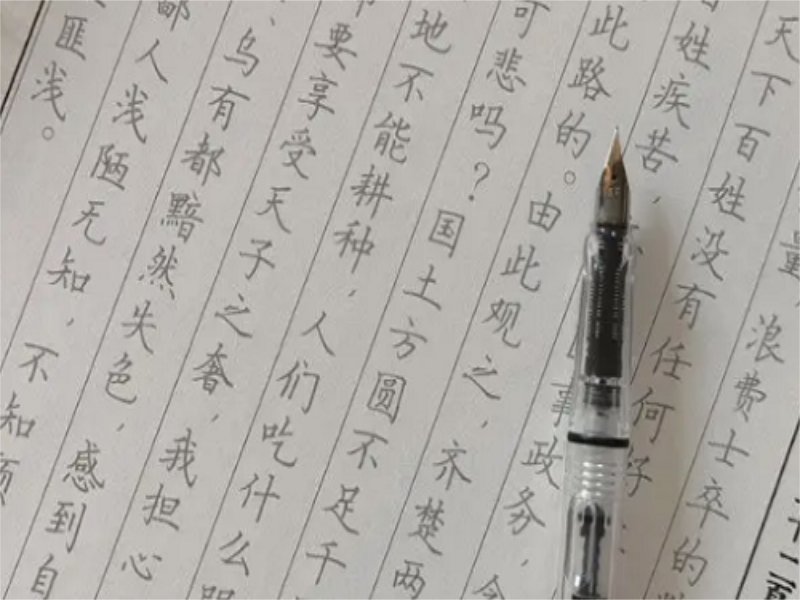 十二頁
量，浪费士卒的
天下百姓没有任何好
姓疾苦，事政务，
此路的。由此观之，齐楚两
可悲吗？国土方圆不足千
地不能耕种，人们吃什么
要享受天子之奢，我担心
乌有都黯然失色，感到自
鄙人浅陋无知，不知
匪浅。